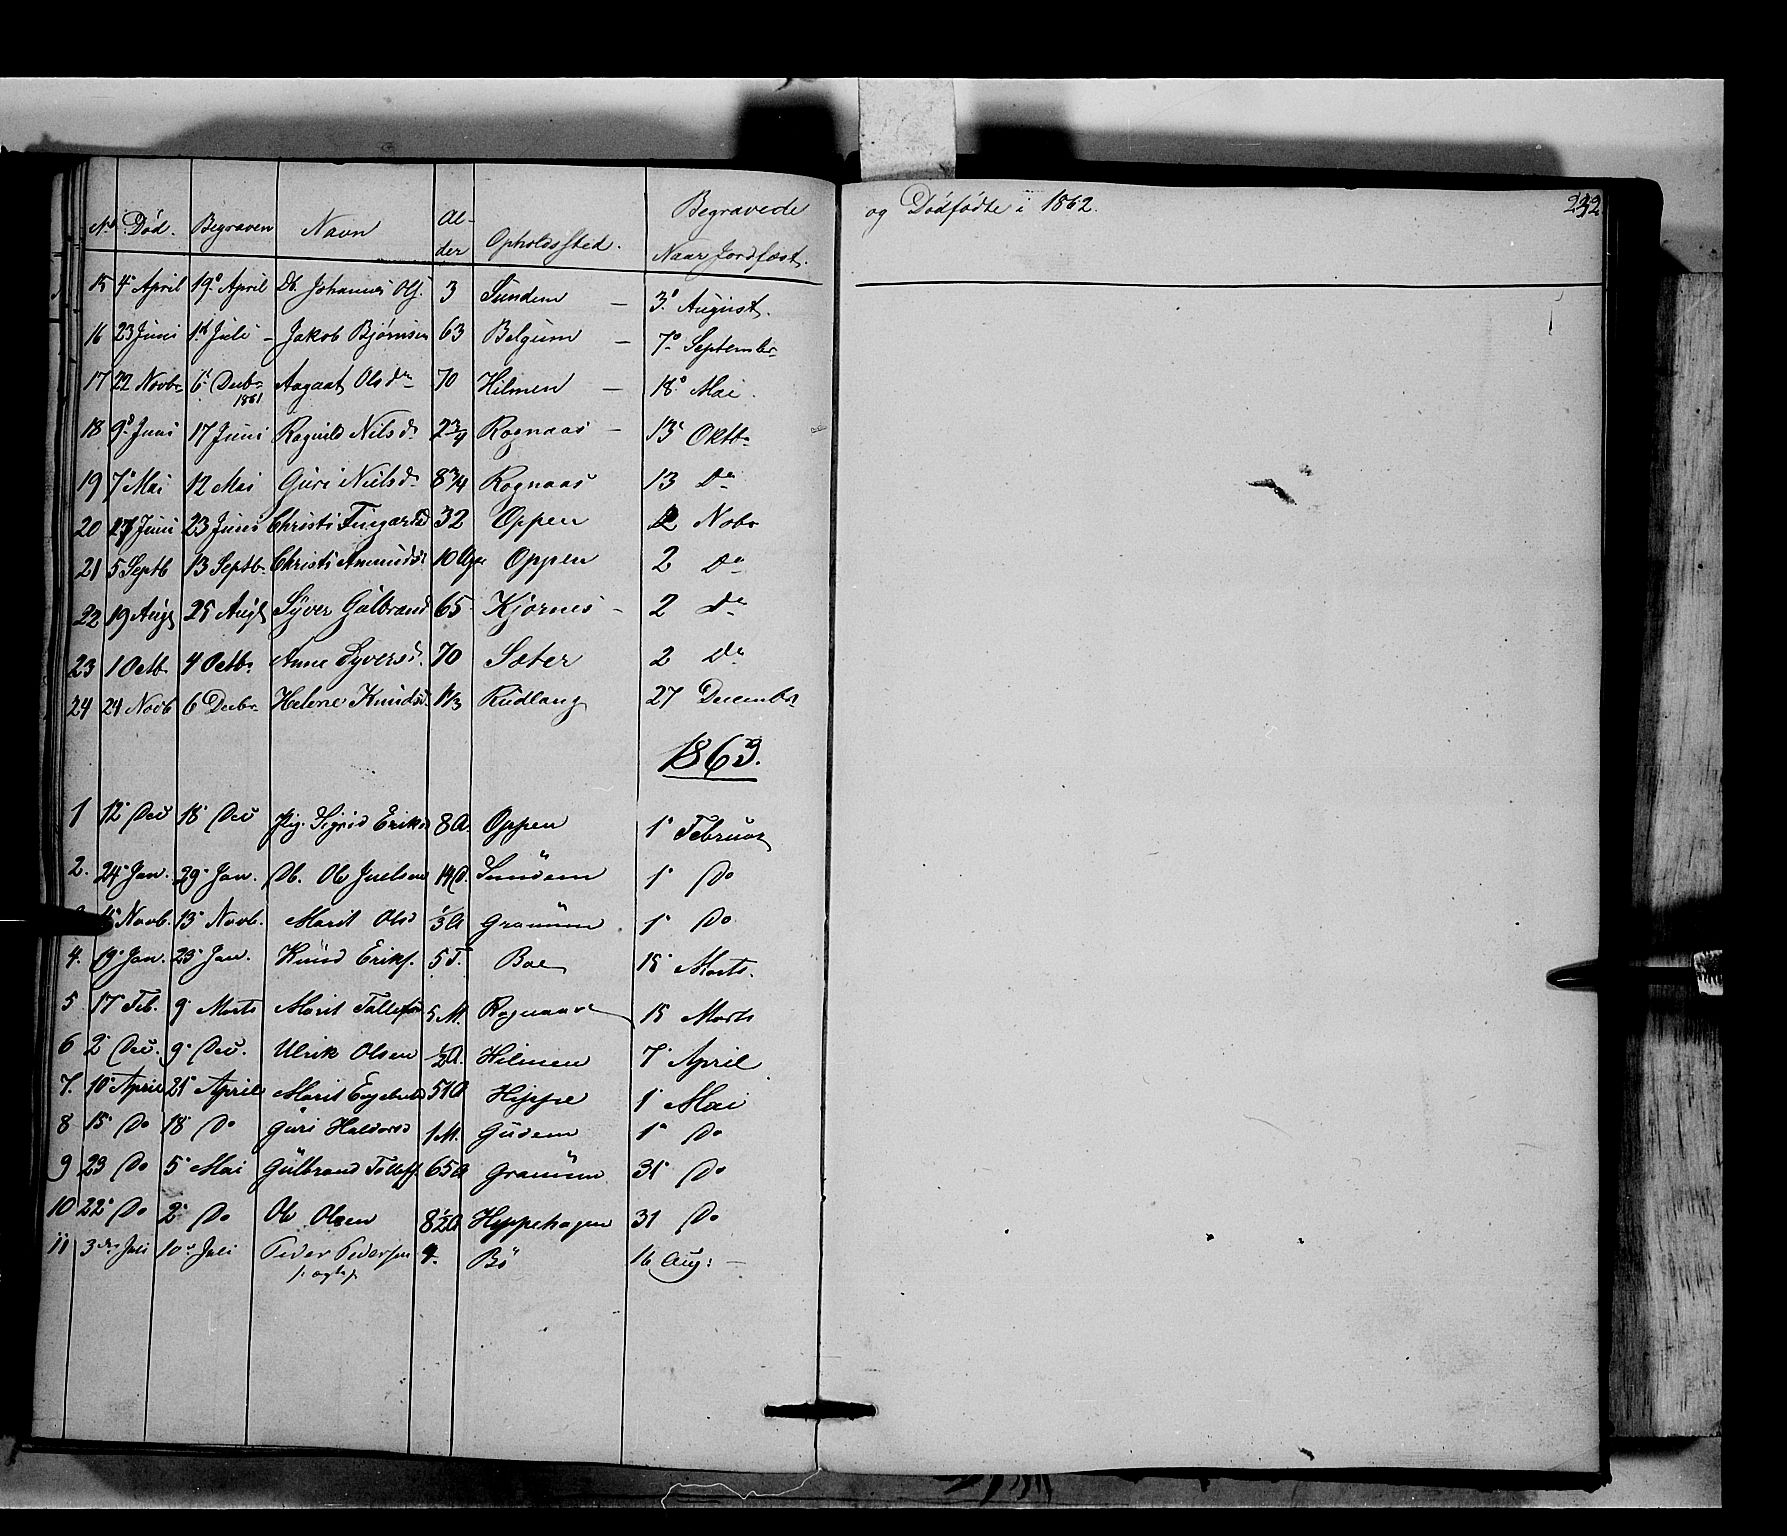 Begravede og Dödfödte i 1862. 232
No Död. Begraven Navn Alder Opholdssted. Naar Jordfæst.
15 4° April 19° April Db. Johannes Ols. 3 Sundem – 3° August.
16 23 Juni 1d Juli – Jakob Bjørnsen 63 Belgum – 7° September
17 22 Novbr 6 Decbr 1861 Aagaat Olsdr 70 Hilmen – 18° Mai.
18 9° Juni 17 Juni Ragnild Nilsd. Rognaas – 13 Oktbr
19 7 Mai 12 Mai Guri Nielsd. 8 3/4 Rognaas 13 Do
20 17 Juni 23 Juni Christi 32 Oppen 2 Nobr
21 5 Septb 13 Septbr Christi Amundsd 10 Oppen 2 Do
22 19 Augt 25 Augt Syver Gulbrand 65 Kjørnes – 2 Do
23 1 Octb 4 Octbr Anne Syversd. 70 Sæter 2 Do
24 24 Novb 6 Decbr Helene Knudsd. Rudlang 27 Decembr
1863.
1 12 Dec 18 Dec Pig. Sigrid Eriksd 8 A. Oppen 1 Februar
2. 24 Jan. 29 Jan. Db. Ole Juelsen 14 D. Sundem 1 Do
Novb. 13 Novb. Marit Olsd 1/3 A Granum 1 Do
4. 19 Jan. 23 Jan. Knud Eriks. 5 T. Boe 15 Marts.
5 17 Feb. 9 Marts Marit Tollefsd 5 M. Rognaas 15 Marts
6 2 Dec. 9 Dec. Ulrik Olsen 1/2 A. Hilmen 7 April
7. 10 April 21 April Marit Engebretsd 51 A Hippe 1 Mai
8 15 Do 18 Do Guri Haldorsd 1 M. Gudem 1 Do
9 23 Do 5 Mai Gulbrand Tollefs. 65 A Granum 31 Do
10 22 Do 2 Do Ole Olsen 8 1/2 A Hippehagen 31 Do
11 3die Juli 10 Juli Peder Pedersen 4 Bö 16 Aug: –